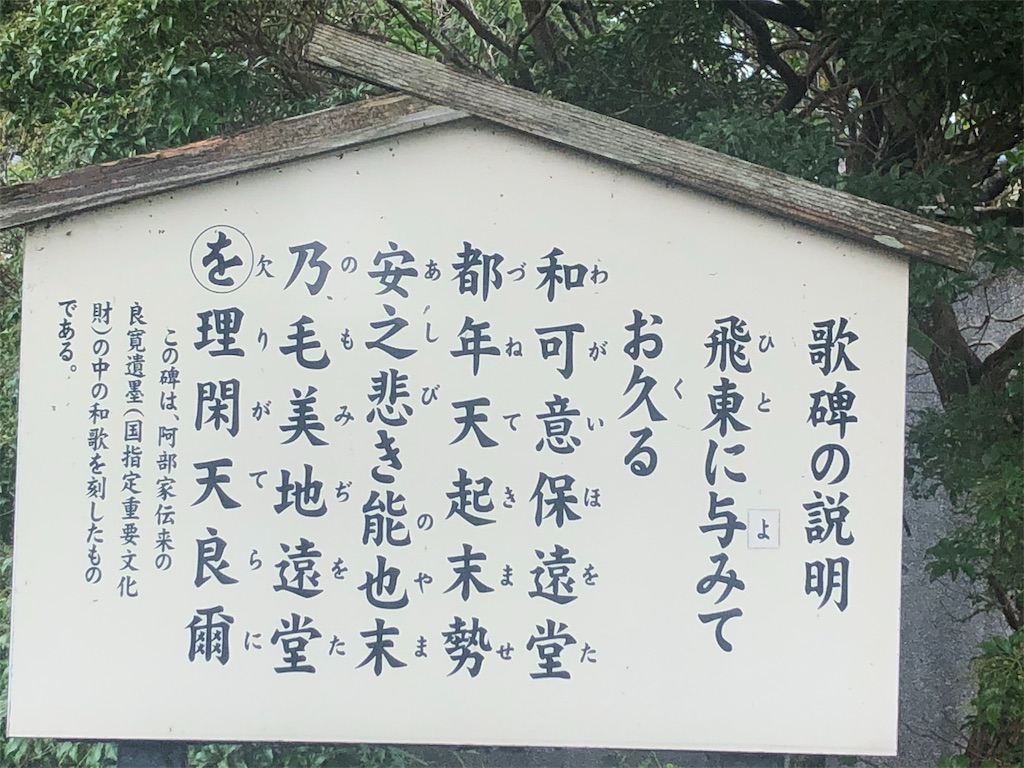 歌碑の説明
飛東に与みて
ひと よ
お久る
く
和可意保遠堂
わがいほをた
都年天起末勢
づねてきませ
安之悲き能也末
あしび のやま
乃毛美地遠堂
のもみぢをた
を理閑天良爾
欠りがてらに
この碑は、阿部家伝来の
良寛遺墨(国指定重要文化
財)の中の和歌を刻したもの
である。